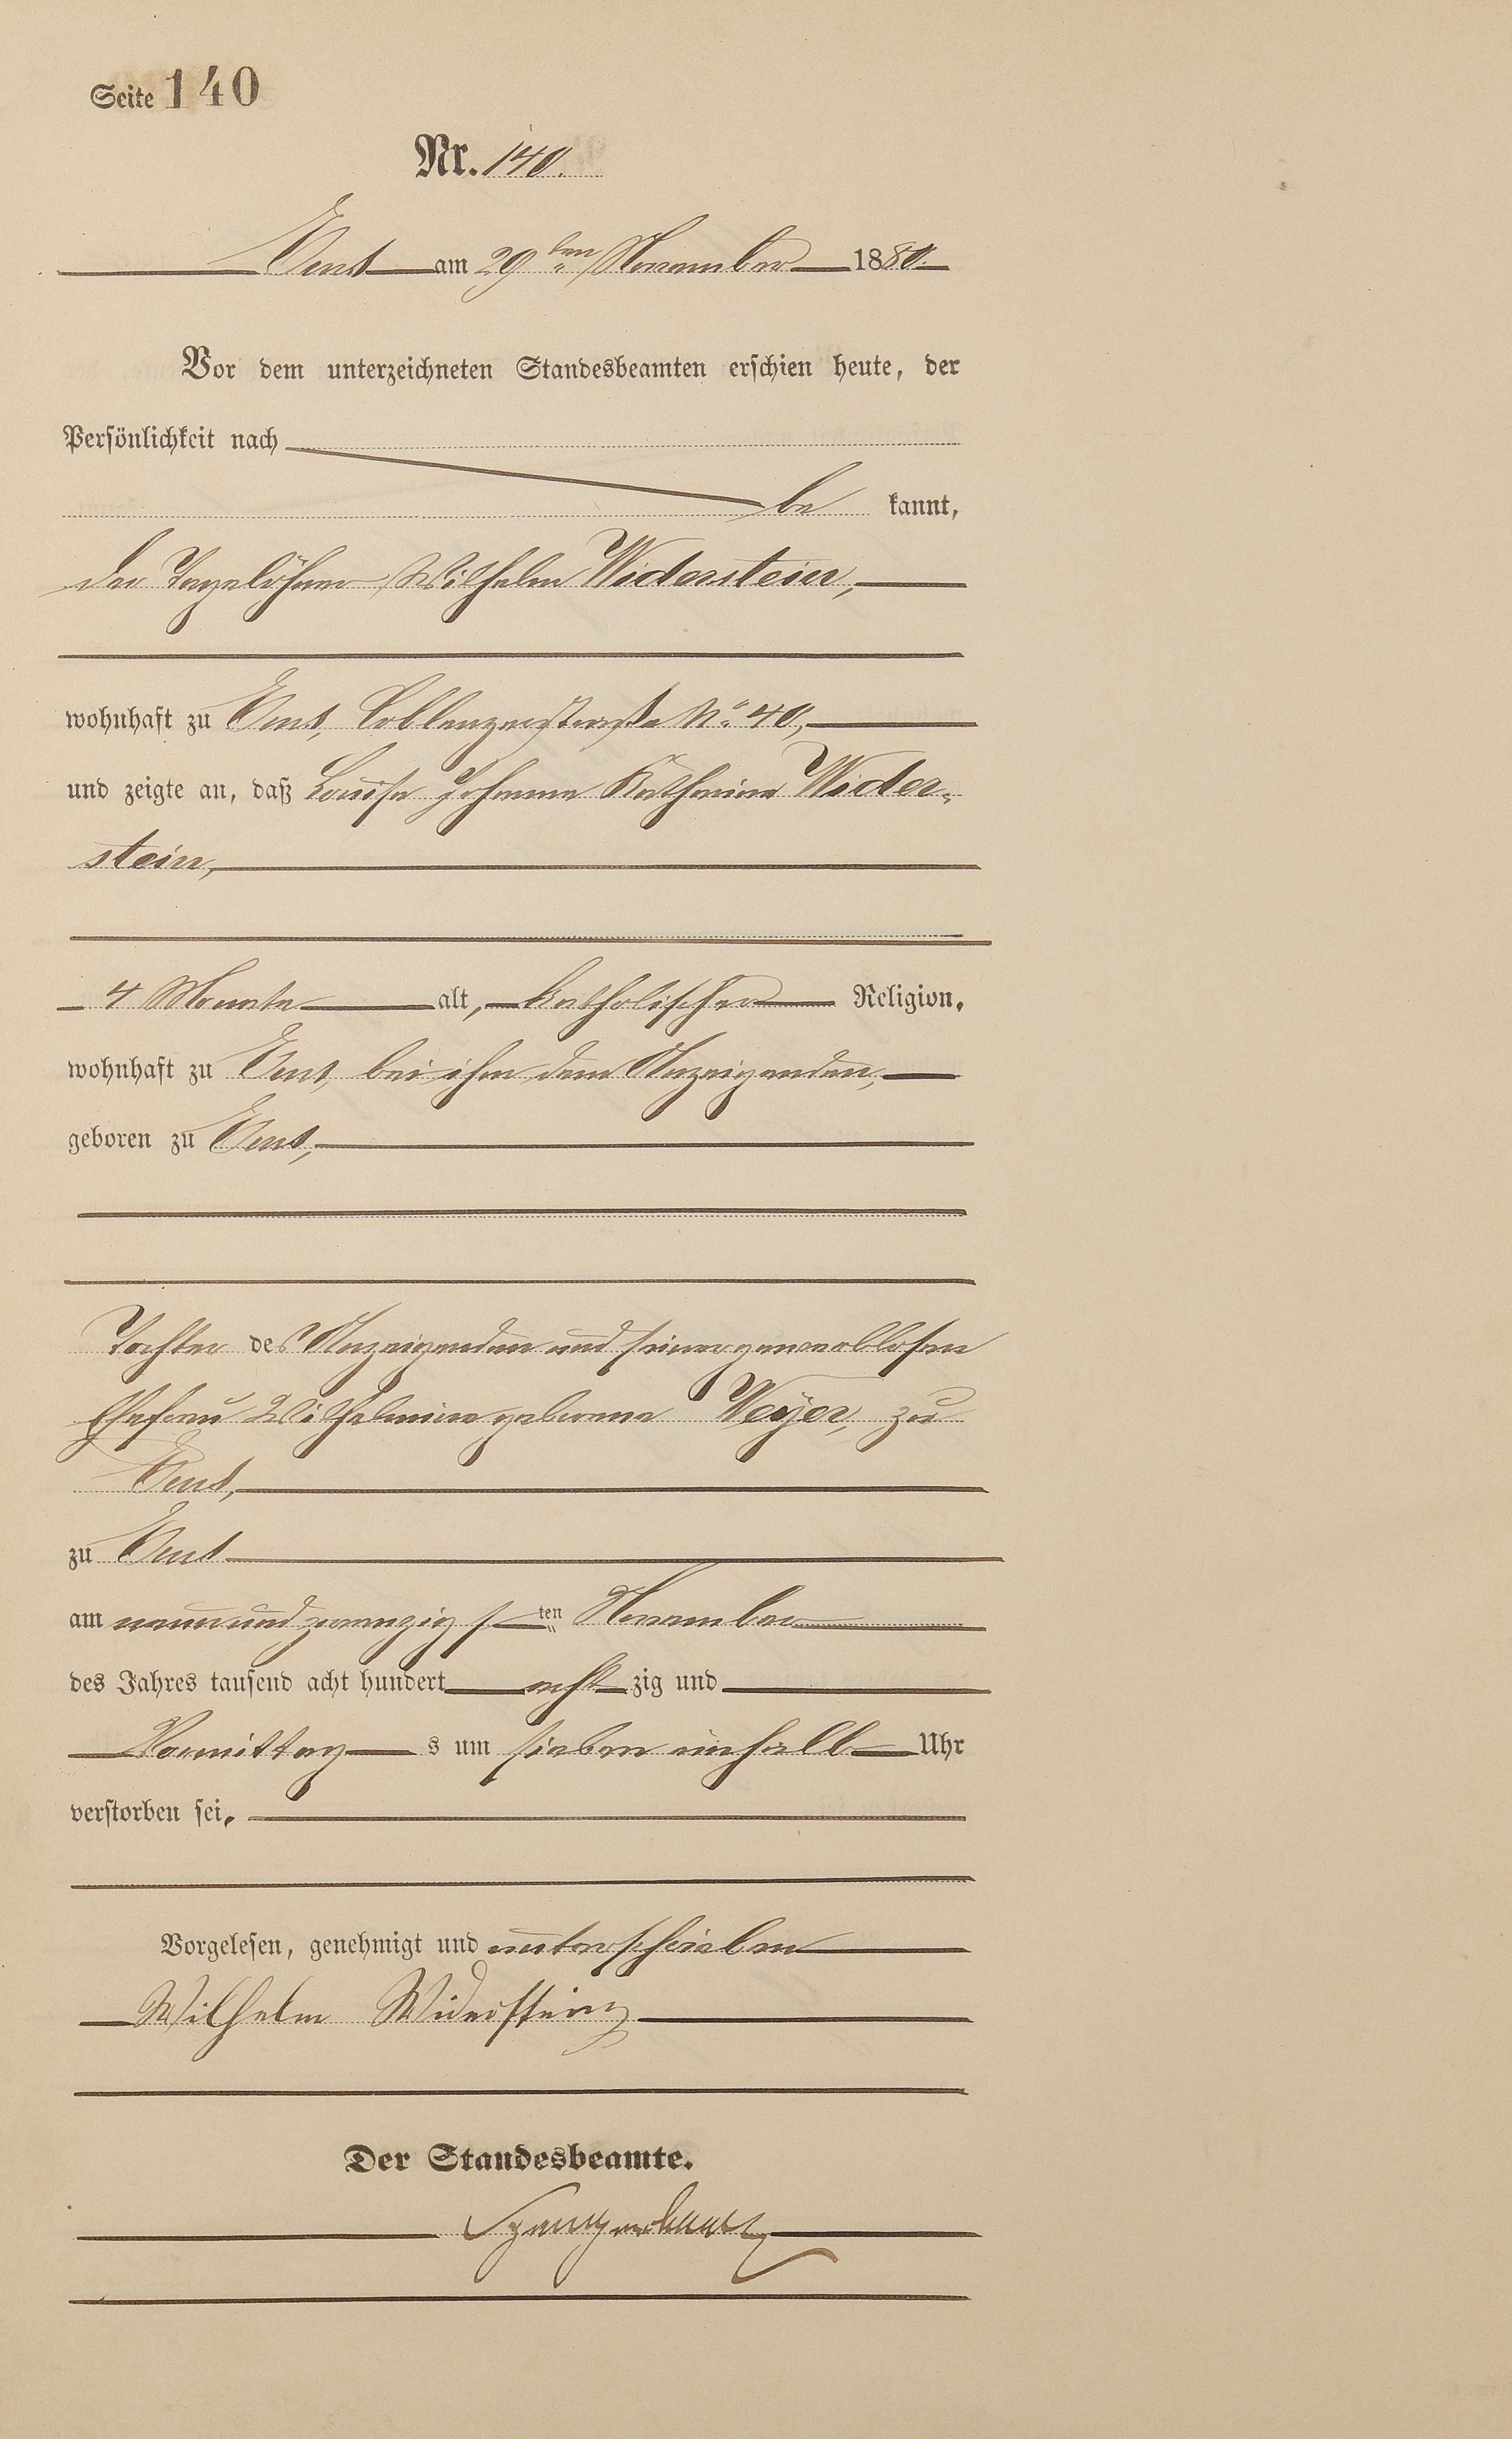 Seite 140
Nr. 140.
Ems am 29ten November 1880.
Vor dem unterzeichneten Standesbeamten erschien heute, der
Persönlichkeit nach
be kannt,
der Tagelöhner Wilhelm Widerstein,
wohnhaft zu Ems, Coblenzerstraße No. 40,
und zeigte an, daß Louise Johanna Katharina Wider-
stein,
4 Monate alt, katholischer Religion,
wohnhaft zu Ems, bei ihm dem Anzeigenden,
geboren zu Ems,
Tochter des Anzeigenden und seiner gewerblosen
Ehefrau Wilhelmine geborene Weyer, zu
Ems,
zu Ems
am neunundzwanzigsten November
des Jahres tausend acht hundert acht zig und
Vormittag s um sieben einhalb Uhr
verstorben sei.
Vorgelesen, genehmigt und unterschrieben
Wilhelm Widerstein
Der Standesbeamte.